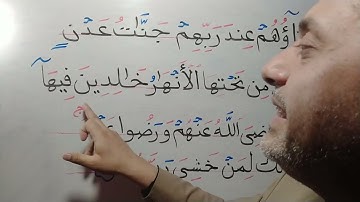 ؤُهُمْ عِندَ رَبِّهِمْ جَنَّاتُ عَدْنٍ
مِن تَحْتِهَا الْأَنْهَارُ خَالِدِينَ فِيهَا
اللَّهُ عَنْهُمْ وَرَضُوا
لِمَنْ خَشِيَ